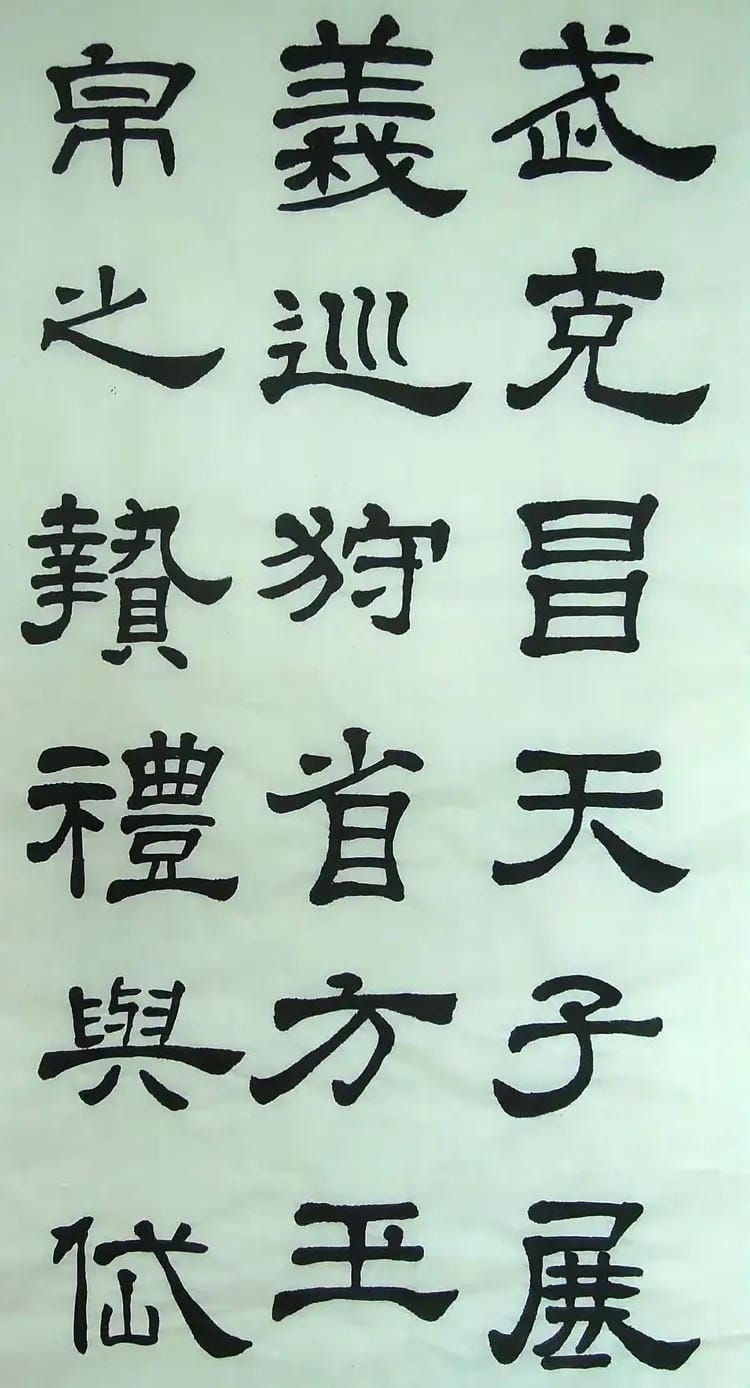 武克昌天子展
義巡狩省方玉
帛之贄禮與岱